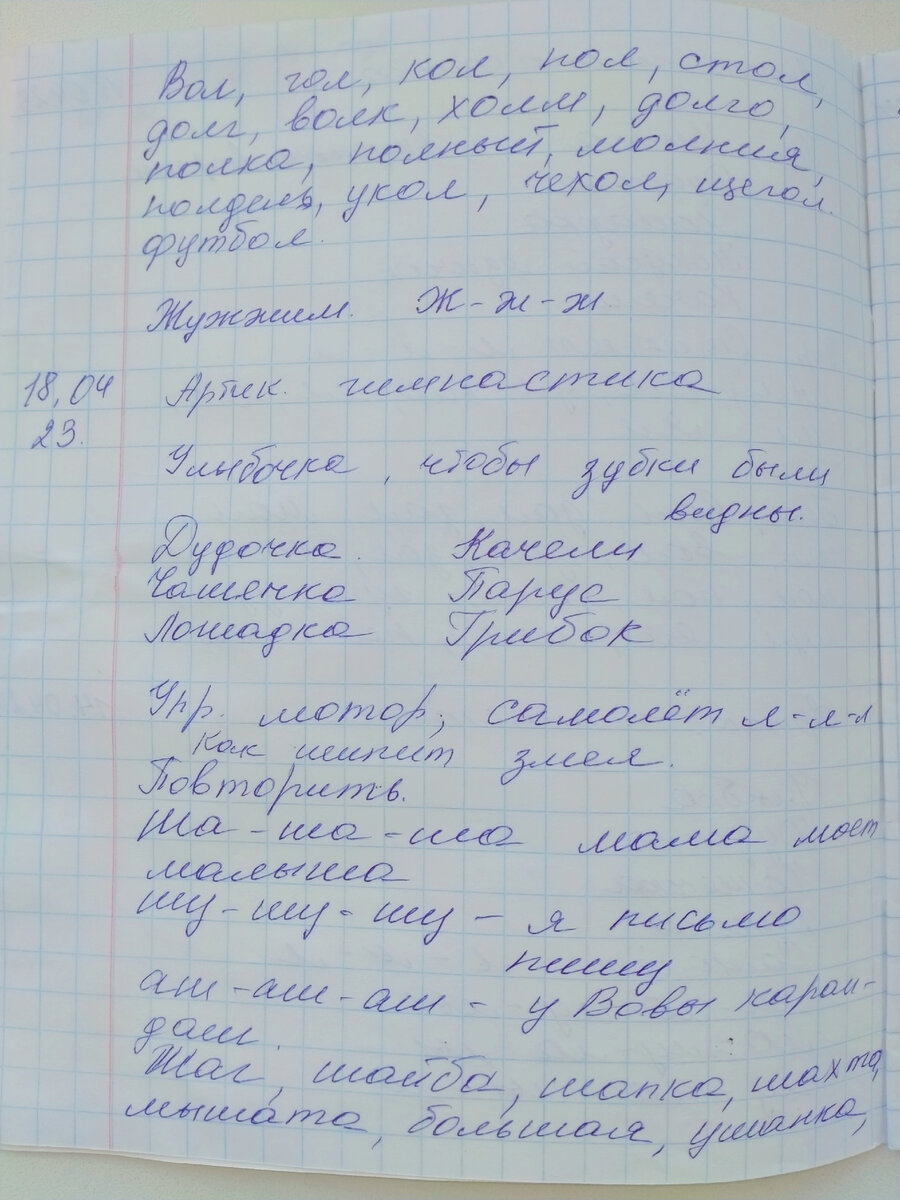 Вол, гол, кол, пол, стол,
долг, волк, холм, долго,
полка, полный, молния,
полдень, укол, чехол, щегол.
футбол.
Жужжим. Ж-ж-ж
18.04 Артик. гимнастика
23.
Улыбочка, чтобы зубки были
видны.
Дудочка. Качели
Чашечка Парус
Лошадка Грибок
Упр. мотор, самолёт л-л-л
Как шипит змея.
Повторить.
Ша-ша-ша мама моет
малыша
шу-шу-шу - я письмо
пишу
аш-аш-аш - у Вовы каран-
даш.
Шаг, шайба, шапка, шахта,
мышата, большая, ушанка,